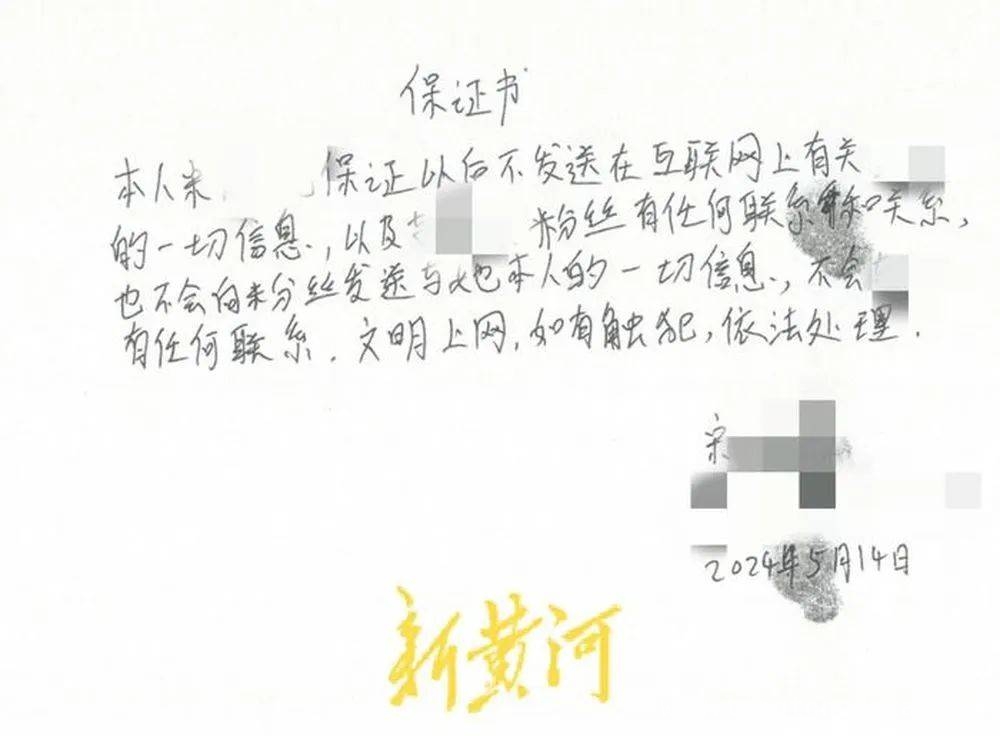 保证书
本人宋 保证以后不发送在互联网上有关
的一切信息,以及 粉丝有任何联系和关系,
也不会向粉丝发送与她本人的一切信息,不会
有任何联系.文明上网,如有触犯,依法处理.
宋
2024年5月14日
新黄河